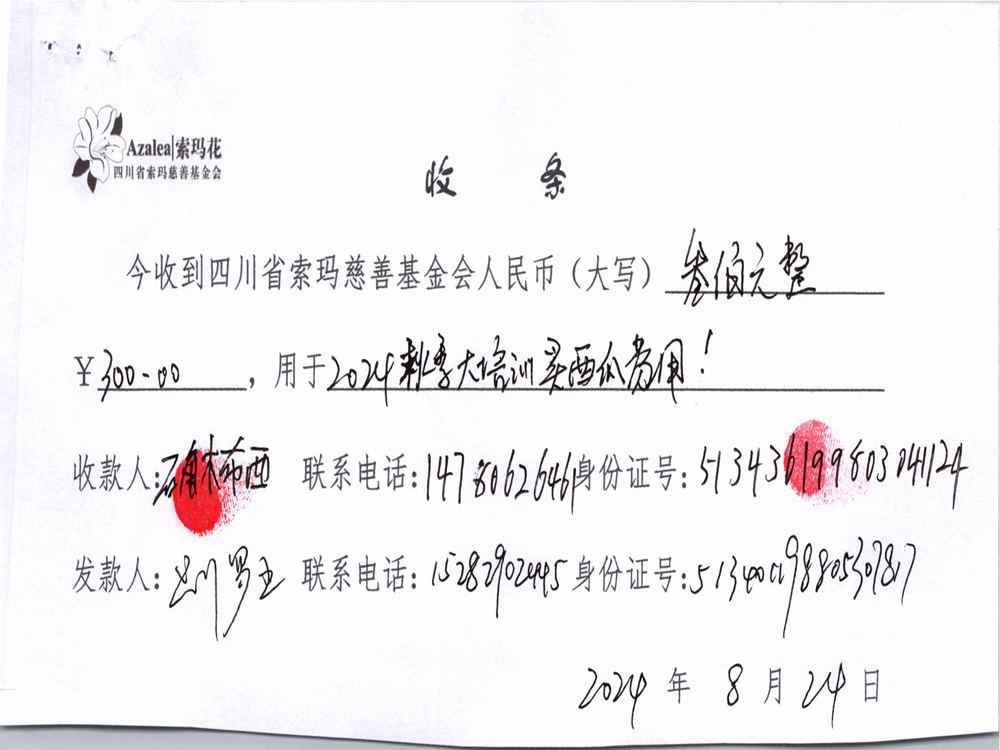 Azalea|索玛花
四川省索玛慈善基金会
收 条
今收到四川省索玛慈善基金会人民币（大写）叁佰元整
￥300.00，用于2024 季大培训买西瓜费用！
收款人: 木布西 联系电话:14780626461 身份证号:513436199803041124
发款人: 联系电话:15282902445 身份证号:
2024 年 8 月 24 日